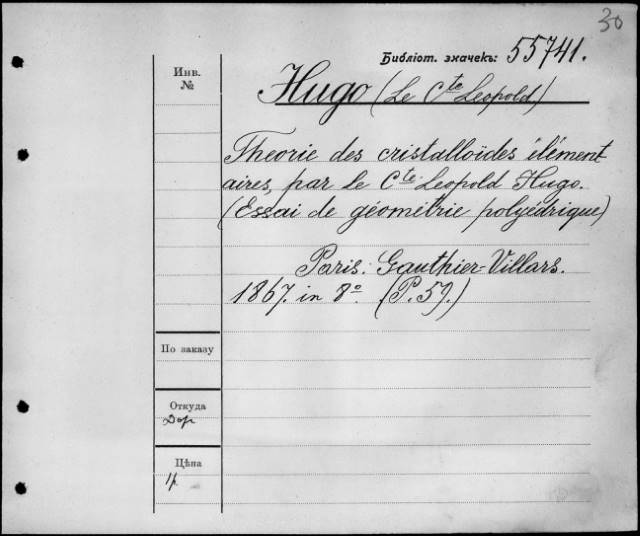 30
Библіот. значекъ: 55741.
Инв.
№
Hugo (Le Cte Leopold)
Theorie des cristalloïdes élément
aires, par le Cte Leopold Hugo.
(Essai de géométrie polyédrique)
Paris. Gauthier-Villars.
1867. in 8o (P. 59.)
По заказу
Откуда
Дар
Цѣна